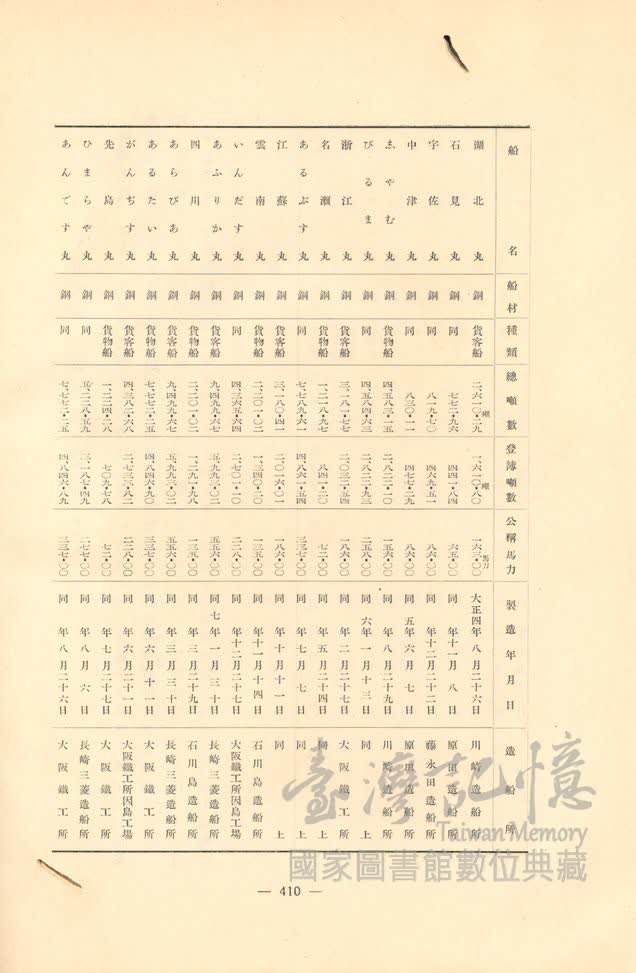 船名 船材 種類 總噸數 登簿噸數 公稱馬力 製造年月日 造船所
湖北丸 鋼 貨客船 二、六一〇・二九噸 一、六一〇・八〇噸 一六三・〇〇馬力 大正四年八月二十六日 川崎造船所
石見丸 鋼 同 七七二・九六 四四一・八四 六五・〇〇 同年十一月八日 原田造船所
宇佐丸 鋼 同 八一九・七〇 四六九・五一 八六・〇〇 同年十二月二十二日 藤永田造船所
中津丸 鋼 同 八三〇・一一 四七七・二九 八六・〇〇 同五年六月七日 原田造船所
志やむ丸 鋼 貨物船 四、五八三・一五 二、八二二・一〇 一五六・〇〇 同年八月二十九日 川崎造船所
びるま丸 鋼 同 四、五八四・六三 二、八二二・九三 二五八・〇〇 同六年一月十三日 同上
浙江丸 鋼 貨客船 三、一八一・七七 二、〇三二・五四 一八六・〇〇 同年二月二十七日 大阪鐵工所
名瀬丸 鋼 貨物船 一、二一八・九七 八四一・二〇 七二・〇〇 同年五月二十四日 同上
あるぷす丸 鋼 同 七、七八九・六一 三三七・〇〇 同年七月七日 同上
江蘇丸 鋼 貨客船 三、一八〇・四一 二、〇一六・〇一 一八六・〇〇 同年十月十一日 同上
雲南丸 鋼 貨客船 二、二〇一・〇二 一、三四〇・二〇 一三五・〇〇 同年十一月十四日 石川島造船所
いんだす丸 鋼 同 四、三六五・六四 二、七〇一・一〇 二二八・〇〇 同年十二月二十七日 大阪鐵工所因島工場
あふりか丸 鋼 貨客船 九、四九九・六七 五、九九三・〇二 五五六・〇〇 同七年一月三十日 長崎三菱造船所
四川丸 鋼 貨物船 二、二〇一・〇二 一、二九一・九八 一三五・〇〇 同年三月二十九日 石川島造船所
あらびあ丸 鋼 貨客船 九、四九九・六七 五、九九三・〇二 五五六・〇〇 同年三月三十日 長崎三菱造船所
あるたい丸 鋼 貨物船 七、七七二・二五 四、八四六・九〇 三三七・〇〇 同年六月十一日 大阪鐵工所
がんぢす丸 鋼 貨客船 四、三八二・六八 二、七三三・八二 二二八・〇〇 同年六月二十一日 大阪鐵工所因島工場
先島丸 鋼 貨物船 一、二二四・二八 七〇九・七八 七二・〇〇 同年七月二十七日 大阪鐵工所
ひまらや丸 鋼 同 五、二二八・五九 三、一八七・四九 二七七・〇〇 同年八月六日 長崎三菱造船所
あんです丸 鋼 同 七、七七二・二五 四、八四六・八九 三三七・〇〇 同年八月二十六日 大阪鐵工所
臺灣記憶
Taiwan Memory
國家圖書館數位典藏
— 410 —